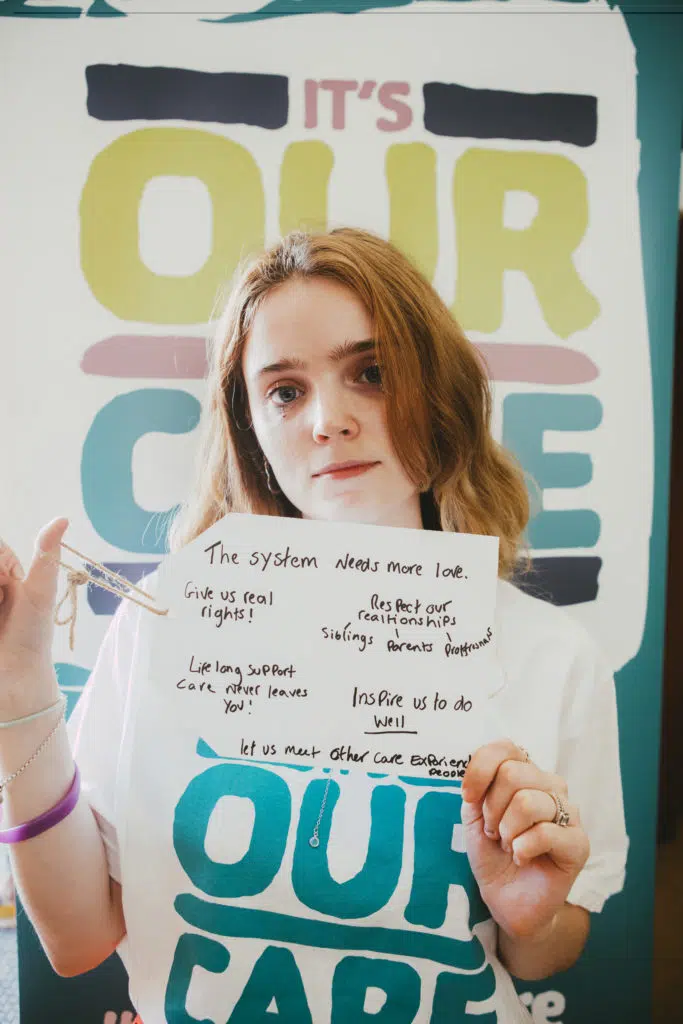 IT'S
OUR
The system needs more love.
Give us real
rights!
Respect our
realtionships
Siblings
Parents
Life long support
Care never leaves
You!
Inspire us to do
Well
let us meet other care Experienc
people
OUR
CARE